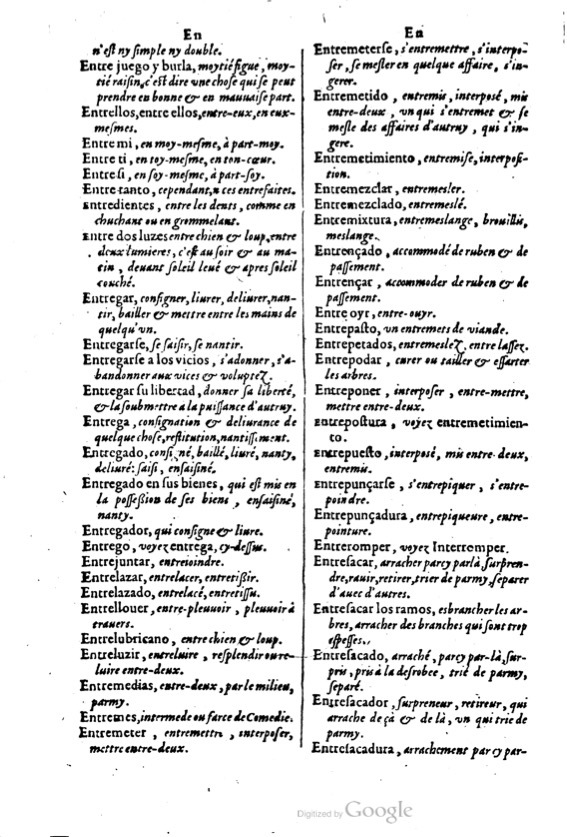 En
n'est ny simple ny double.
Entre juego y burla, moytié figue, moy-
tié raisin, c'est dire vne chose qui se peut
prendre en bonne & en mauuaise part.
Entrellos, entre ellos, entre-eux, en eux-
mesmes.
Entre mi, en moy-mesme, à part-moy.
Entre ti, en toy-mesme, en ton-cœur.
Entre si, en soy-mesme, à part-soy.
Entre tanto, cependant, n ces entrefaites.
Entredientes, entre les dents, comme en
chuchant ou en grommelant.
Entre dos luzes entre chien & loup, entre
deux lumieres, c'est au soir & au ma-
tin, deuant soleil leué & apres soleil
couché.
Entregar, consigner, liurer, deliurer, nan-
tir, bailler & mettre entre les mains de
quelqu'vn.
Entregarse, se saisir, se nantir.
Entregarse a los vicios, s'adonner, s'a-
bandonner aux vices & voluptez.
Entregar su libertad, donner sa liberté,
& la soubmettre a la puissance d'autruy.
Entrega, consignation & deliurance de
quelque chose, restitution, nantissement.
Entregado, consigné, baillé, liuré, nanty,
deliuré: saisi, ensaisiné.
Entregado en sus bienes, qui est mis en
la possession de ses biens, ensaisiné,
nanty.
Entregador, qui consigne & liure.
Entrego, voyez entrega, cy-dessus.
Entrejuntar, entreioindre.
Entrelazar, entrelacer, entretißir.
Entrelazado, entrelacé, entretissu.
Entrellouer, entre-pleuuoir, pleuuoir à
trauers.
Entrelubricano, entre chien & loup.
Entreluzir, entreluire, resplendir ou re-
luire entre-deux.
Entremedias, entre-deux, par le milieu,
parmy.
Entremes, intermede ou farce de Comedie.
Entremeter, entremettre, interposer,
mettre entre-deux.
En
Entremeterse, s'entremettre, s'interpo-
ser, se mesler en quelque affaire, s'in-
gerer.
Entremetido, entremis, interposé, mis
entre-deux, vn qui s'entremet & se
mesle des affaires d'autruy, qui s'in-
gere.
Entremetimiento, entremise, interposi-
tion.
Entremezclar, entremesler.
Entremezclado, entremeslé.
Entremixtura, entremeslange, brouillis,
meslange.
Entrençado, accommodé de ruben & de
passement.
Entrençar, accommoder de ruben & de
passement.
Entre oyr, entre-ouyr.
Entrepasto, vn entremets de viande.
Entrepetados, entremeslez, entre lassez.
Entrepodar, curer ou tailler & essarter
les arbres.
Entreponer, interposer, entre-mettre,
mettre entre-deux.
Entrepostura, voyez entremetimien-
to.
Entrepuesto, interposé, mis entre-deux,
entremis.
Entrepunçarse, s'entrepiquer, s'entre-
poindre.
Entrepunçadura, entrepiqueure, entre-
pointure.
Entreromper, voyez Interromper.
Entresacar, arracher parcy par là, surpren-
dre, rauir, retirer, trier de parmy, separer
d'auec d'autres.
Entresacar los ramos, esbrancher les ar-
bres, arracher des branches qui sont trop
espesses.
Entresacado, arraché, parcy par-là, sur-
pris, pris à la desrobee, trié de parmy,
separé.
Entresacador, surpreneur, retireur, qui
arrache de çà & de là, vn qui trie de
parmy.
Entresacadura, arrachement par cy par-
Digitized by Google